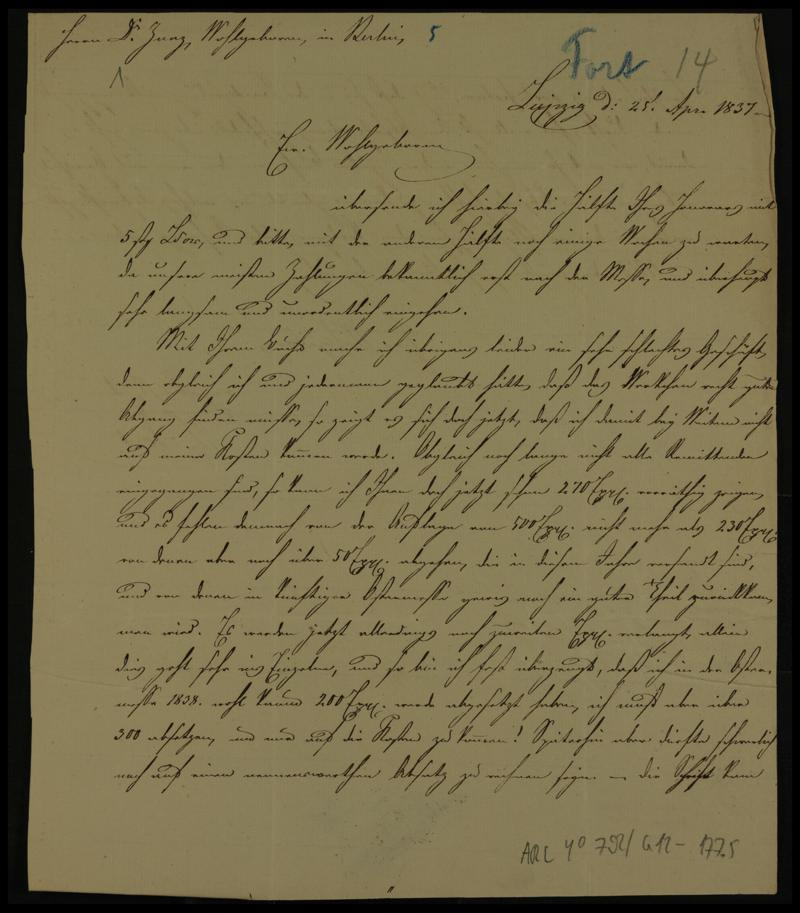 Herrn Dr. Zunz, Wohlgeboren, in Berlin, 5
1
Fort 14
Leipzig d: 25t. Apr. 1837
Ew. Wohlgeboren
übersende ich hierbei die Hälfte Ihres Honorars mit
5 Ldor, und bitte, mit der anderen Hälfte noch einige Wochen zu warten,
da unsere meisten Zahlungen bekanntlich erst nach der Messe, und überhaupt
sehr langsam und unordentlich eingehen.
Mit Ihrem Buche mache ich übrigens leider ein sehr schlechtes Geschäft,
denn obgleich ich und jedermann geglaubt hätte, daß das Werkchen recht guten
Abgang finden müsse, so zeigt es sich doch jetzt, daß ich damit bei Weitem nicht
auf meine Kosten kommen werde. Obgleich noch lange nicht alle Remittenden
eingegangen sind, so kann ich Ihnen doch jetzt schon 270 Expl. vorräthig zeigen,
und es fehlen demnach von der Auflage von 500 Expl. nicht mehr als 230 Expl.
von denen aber noch über 50 Expl. abgehen, die in diesem Jahre versandt sind,
und von denen in künftiger Ostermesse gewis noch ein guter Theil zurückkom-
men wird. Es werden jetzt allerdings noch zuweilen Expl. verlangt, allein
dies geht sehr ins Einzelne, und so bin ich fest überzeugt, daß ich in der Oster-
messe 1838. wohl kaum 200 Expl. werde abgesetzt haben, ich muß aber über
300 absetzen, um nur auf die Kosten zu kommen! Späterhin aber dürfte schwerlich
noch auf einen nennenswerthen Absatz zu rechnen seyn. — die Schrift kam
ARC 4° 792/G12-177.5